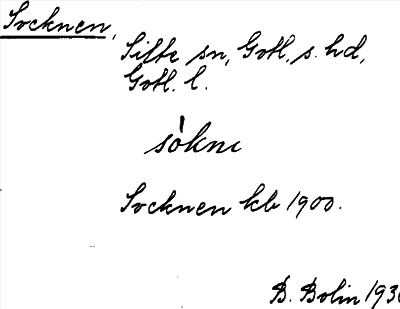 Socknen,
Silte sn, Gotl. s. hd,
Gotl. l.
sòknı
Socknen kb 1900.
B. Bolin 193